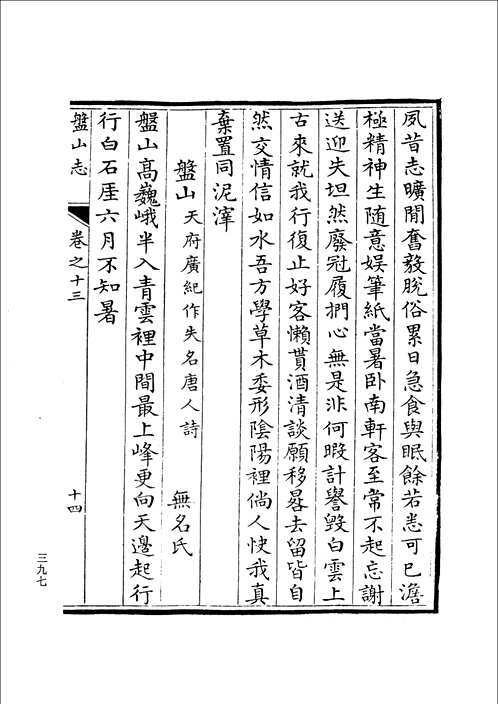 夙昔志曠閒奮毅脫俗累日急食與眠餘若悉可已澹
極精神生随意娱筆紙當暑卧南軒客至常不起忘謝
送迎失坦然廢冠履捫心無是非何暇計譽毀白雲上
古來就我行復止好客懶貰酒清談願移晷去留皆自
然交情信如水吾方學草木委形陰陽裡倘人快我真
棄置同泥滓
盤山天府廣紀作失名唐人詩 無名氏
盤山髙巍峨半入青雲裡中間最上峰更向天邊起行
行白石厓六月不知暑
盤山志 卷之十三 十四
三九七